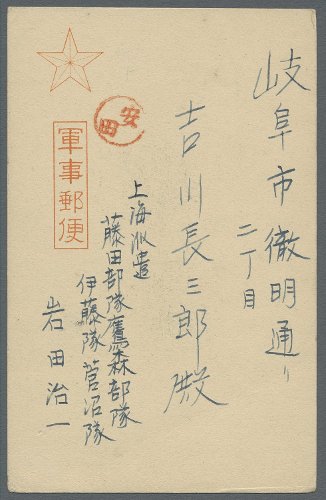 岐阜市徹明通り
二丁目
吉川長三郎殿
上海派遣
藤田部隊鷹森部隊
伊藤隊菅沼隊
岩田治一
安田
軍事郵便